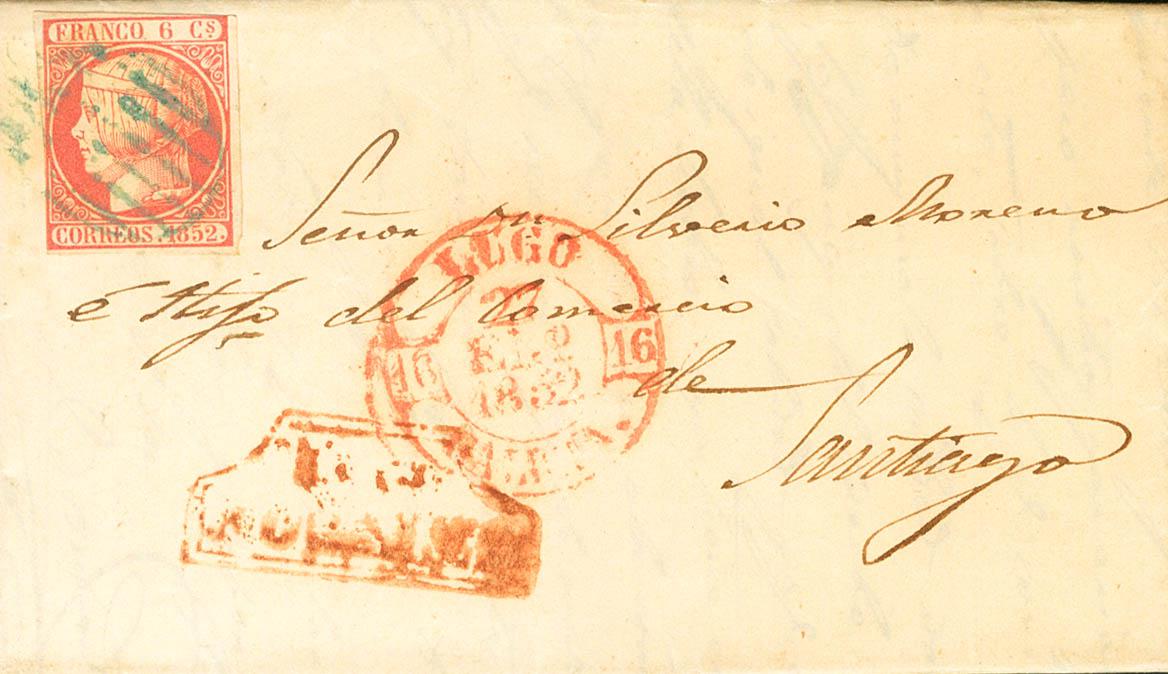 FRANCO 6 Cs
CORREOS. 1852.
Señor Dn Silverio Moreno
é Hijo del Comercio
de
Santiago
LUGO
27
16 16
1852